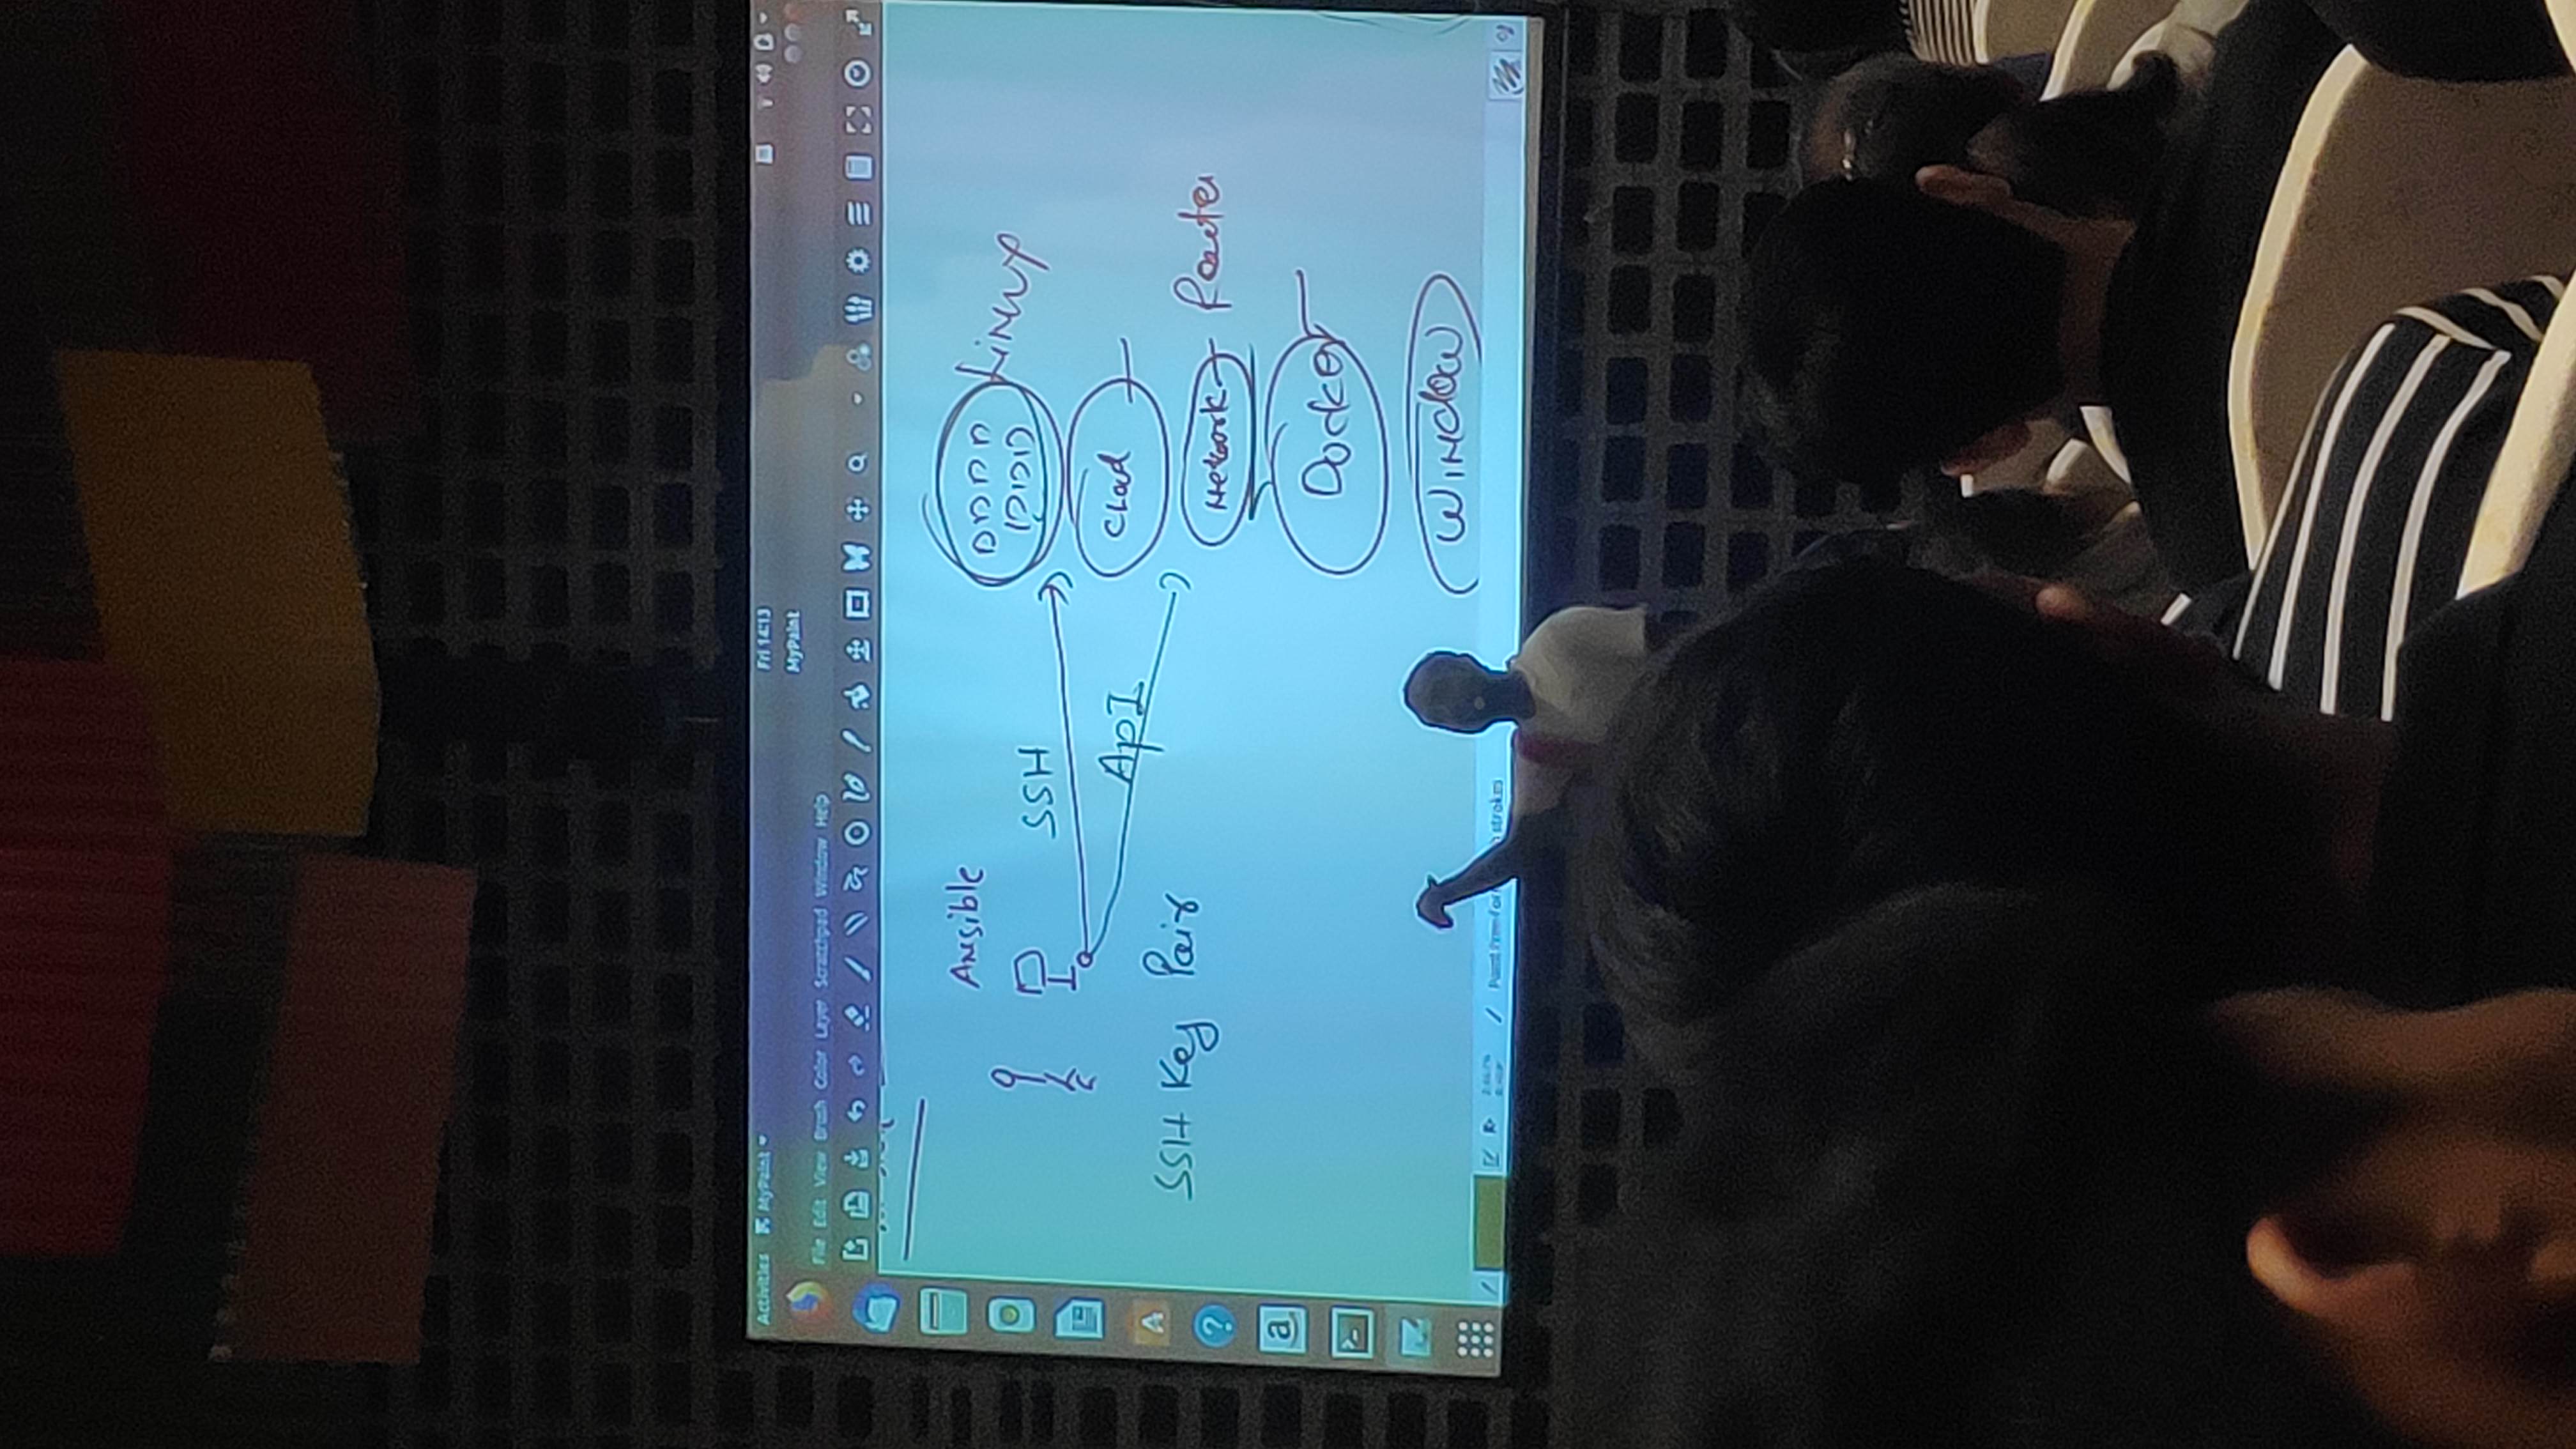 Activities MyPaint Fri 14:13
MyPaint
File Edit View Brush Color Layer Scratchpad Window Help
Ansible
SSH
Linux
API
Cloud
SSH Key Pair
Network Router
Docker
Window
A
?
a
>_
strokes